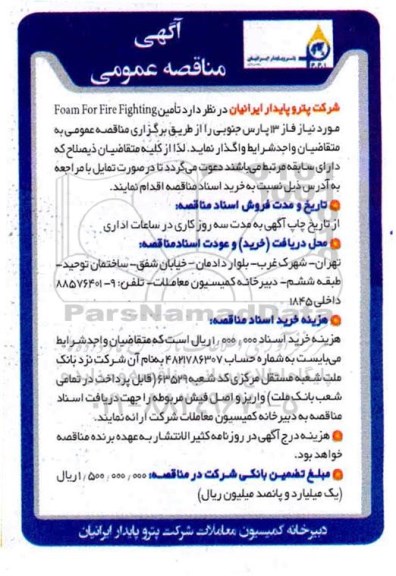 آگهی
مناقصه عمومی
پتروپایدار ایرانیان
شرکت پترو پایدار ایرانیان در نظر دارد تأمین Foam For Fire Fighting
مورد نیاز فاز ۱۳ پارس جنوبی را از طریق برگزاری مناقصه عمومی به
متقاضیان واجد شرایط واگذار نماید. لذا از کلیه متقاضیان ذیصلاح که
دارای سابقه مرتبط می‌باشند دعوت می‌گردد تا در صورت تمایل با مراجعه
به آدرس ذیل نسبت به خرید اسناد مناقصه اقدام نمایند.
تاریخ و مدت فروش اسناد مناقصه:
از تاریخ چاپ آگهی به مدت سه روز کاری در ساعات اداری
محل دریافت (خرید) و عودت اسناد مناقصه:
تهران- شهرک غرب- بلوار دادمان - خیابان شفق- ساختمان توحید-
طبقه ششم- دبیرخانه کمیسیون معاملات- تلفن: ۹-۸۸۵۷۶۴۰۱
داخلی ۱۸۴۵
ParsNamadData
هزینه خرید اسناد مناقصه:
هزینه خرید اسناد ۱/۰۰۰/۰۰۰ ریال است که متقاضیان واجد شرایط
می‌بایست به شماره حساب ۴۸۲۱۷۸۶۳۰۷ به نام آن شرکت نزد بانک
ملت شعبه مستقل مرکزی کد شعبه ۶۳۵۲۹ (قابل پرداخت در تمامی
شعب بانک ملت) واریز و اصل فیش مربوطه را جهت دریافت اسناد
مناقصه به دبیرخانه کمیسیون معاملات شرکت ارائه نمایند.
هزینه درج آگهی در روزنامه کثیرالانتشار به عهده برنده مناقصه
خواهد بود.
مبلغ تضمین بانکی شرکت در مناقصه: ۱/۵۰۰/۰۰۰/۰۰۰ ریال
(یک میلیارد و پانصد میلیون ریال)
دبیرخانه کمیسیون معاملات شرکت پترو پایدار ایرانیان